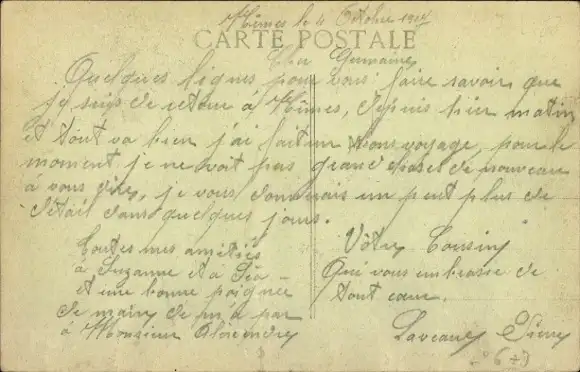 Nîmes le 4 Octobre
CARTE POSTALE
Germaine
Quelques lignes pour vous faire savoir que
je suis de retour à Nîmes, depuis hier matin
et tout va bien j'ai fait un bon voyage, pour le
moment je ne voit pas grand choses de nouveau
à vous dire, je vous donnerais un peut plus de
détail dans quelques jours.
Toutes mes amitiés
à Suzanne et à
et une bonne poignée
de main de ma par
à Monsieur Alexendre
Votre Cousin
Qui vous embrasse de
tout cœur.